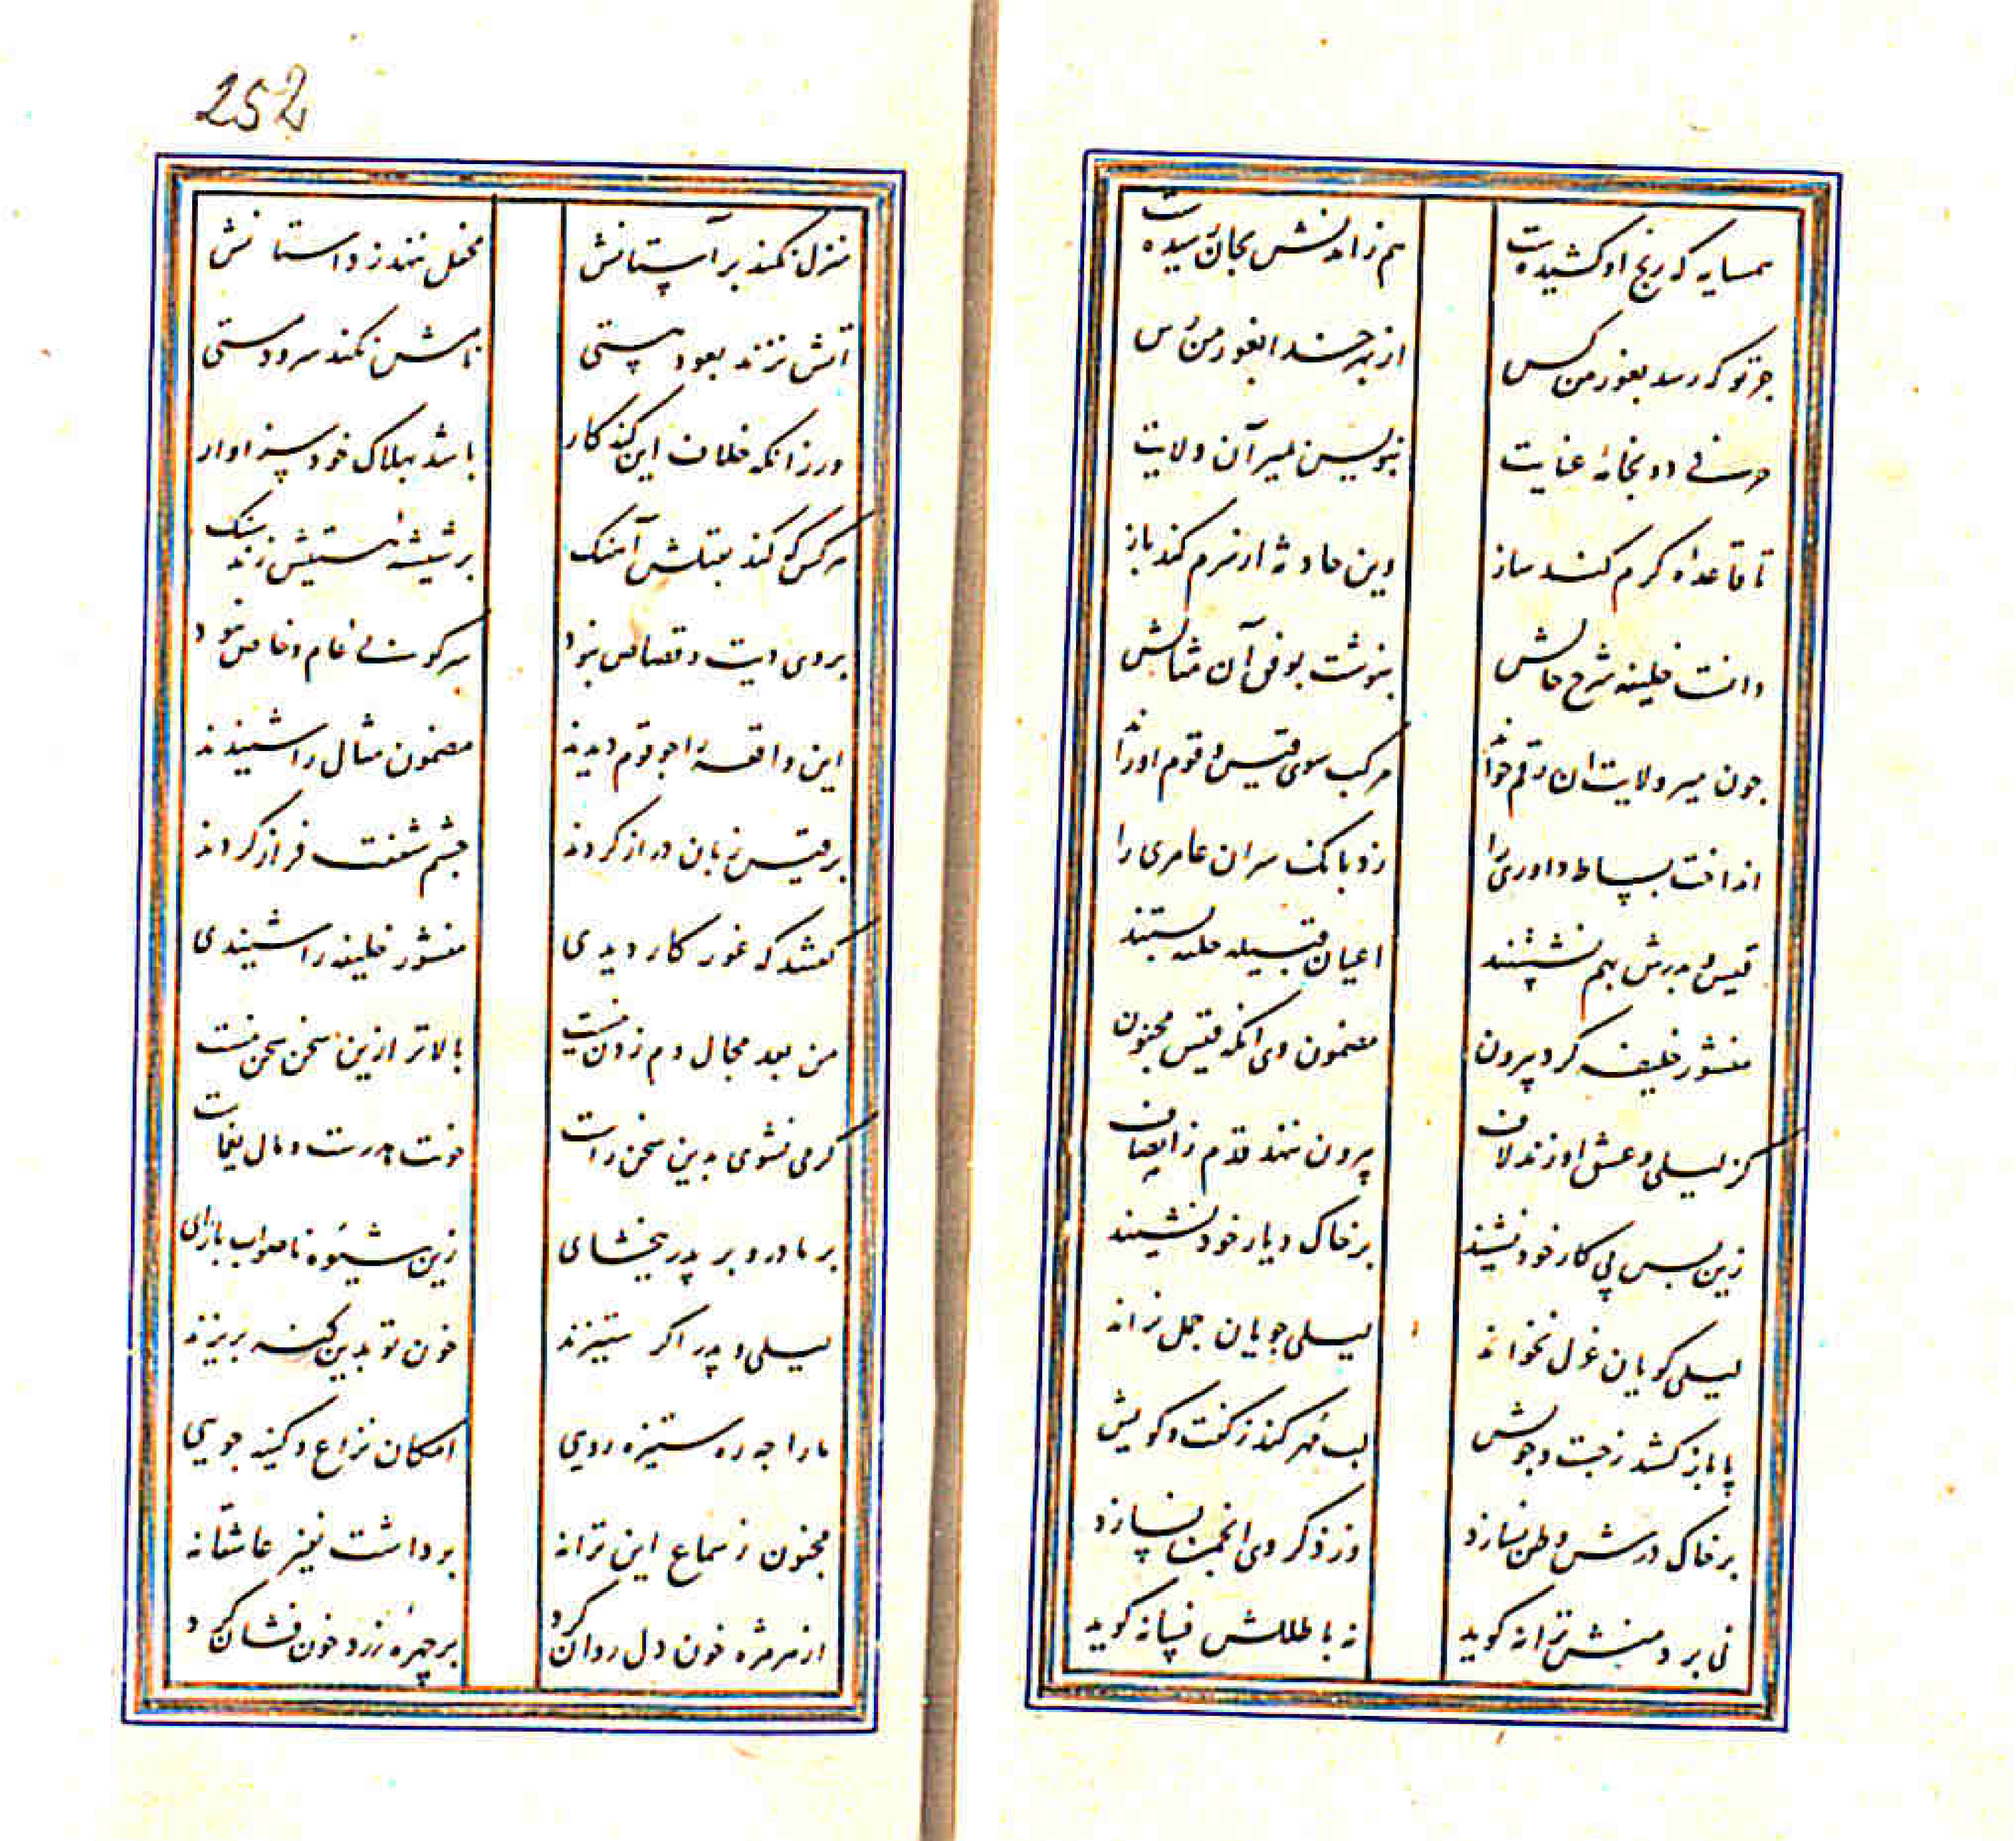 همسایه که رنج او کشیدست هم زامدنش بجان رسیدست
جز تو که رسد بغور من کس از بهر خدا بغور من رس
حرفی دو بخامهٔ عنایت بنویس بمیر آن ولایت
تا قاعدهٔ کرم کند ساز وین حادثه از سرم کند باز
دانست خلیفه شرح حالش بنوشت بوفق آن مثالش
چون میر ولایت ان رقم خواند مرکب سوی قیس و قوم او راند
انداخت بساط داوری را زد بانک سران عامری را
قیس و پدرش بهم نشستند اعیان قبیله حلقه بستند
منشور خلیفه کرد بیرون مضمون وی انکه قیس مجنون
کز لیلی و عشق او زند لاف بیرون ننهد قدم ز انصاف
زین پس پی کار خود نشیند بر خاک دیار خود نشیند
لیلی کویان غزل نخواند لیلی جویان جمل نراند
پا باز کشد ز جست و جویش لب مهر کند ز گفت و کویش
بر خاک درش وطن نسازد وز ذکر وی انجمن نسازد
نی بر دمنش ترانه کوید نه با طللش فسانه کوید
252
منزل نکند بر آستانش محفل ننهد ز داستانش
اتش نزند بعود هستی نامش نکند سرود مستی
ور زانکه خلاف این کند کار باشد بهلاک خود سزاوار
هر کس که کند بقتلش آهنک بر شیشهٔ هستیش زند سنک
بر وی دیت و قصاص نبود هر کونه غی عام و خاص نبود
این واقعه را چو قوم دیدند مضمون مثال را شنیدند
بر قیس زبان دراز کردند چشم شفقت فراز کردند
گفتند که غور کار دیدی منشور خلیفه را شنیدی
من بعد مجال دم زدن نیست بالاتر ازین سخن سخن نیست
کر می نشوی بدین سخن راست خونت هدرست و مال یغماست
بر مادر و بر پدر ببخشای زین شیوهٔ ناصواب بازای
لیلی و پدر اکر ستیزند خون تو بدین کنه بریزند
ما را چه ره ستیزه رویی امکان نزاع و کینه جویی
مجنون ز سماع این ترانه برداشت نفیر عاشقانه
از هر مژه خون دل روان کرد بر چهرهٔ زرد خون فشان کرد